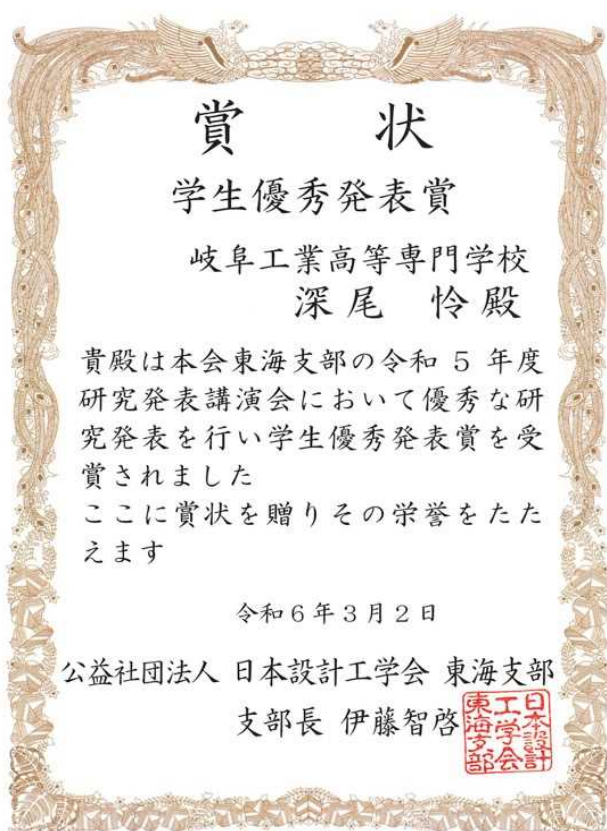 賞 状
学生優秀発表賞
岐阜工業高等専門学校
深尾 怜殿
貴殿は本会東海支部の令和 5 年度
研究発表講演会において優秀な研
究発表を行い学生優秀発表賞を受
賞されました
ここに賞状を贈りその栄誉をたた
えます
令和6年3月2日
公益社団法人 日本設計工学会 東海支部
支部長 伊藤智啓
日本設計
工学会
東海支部